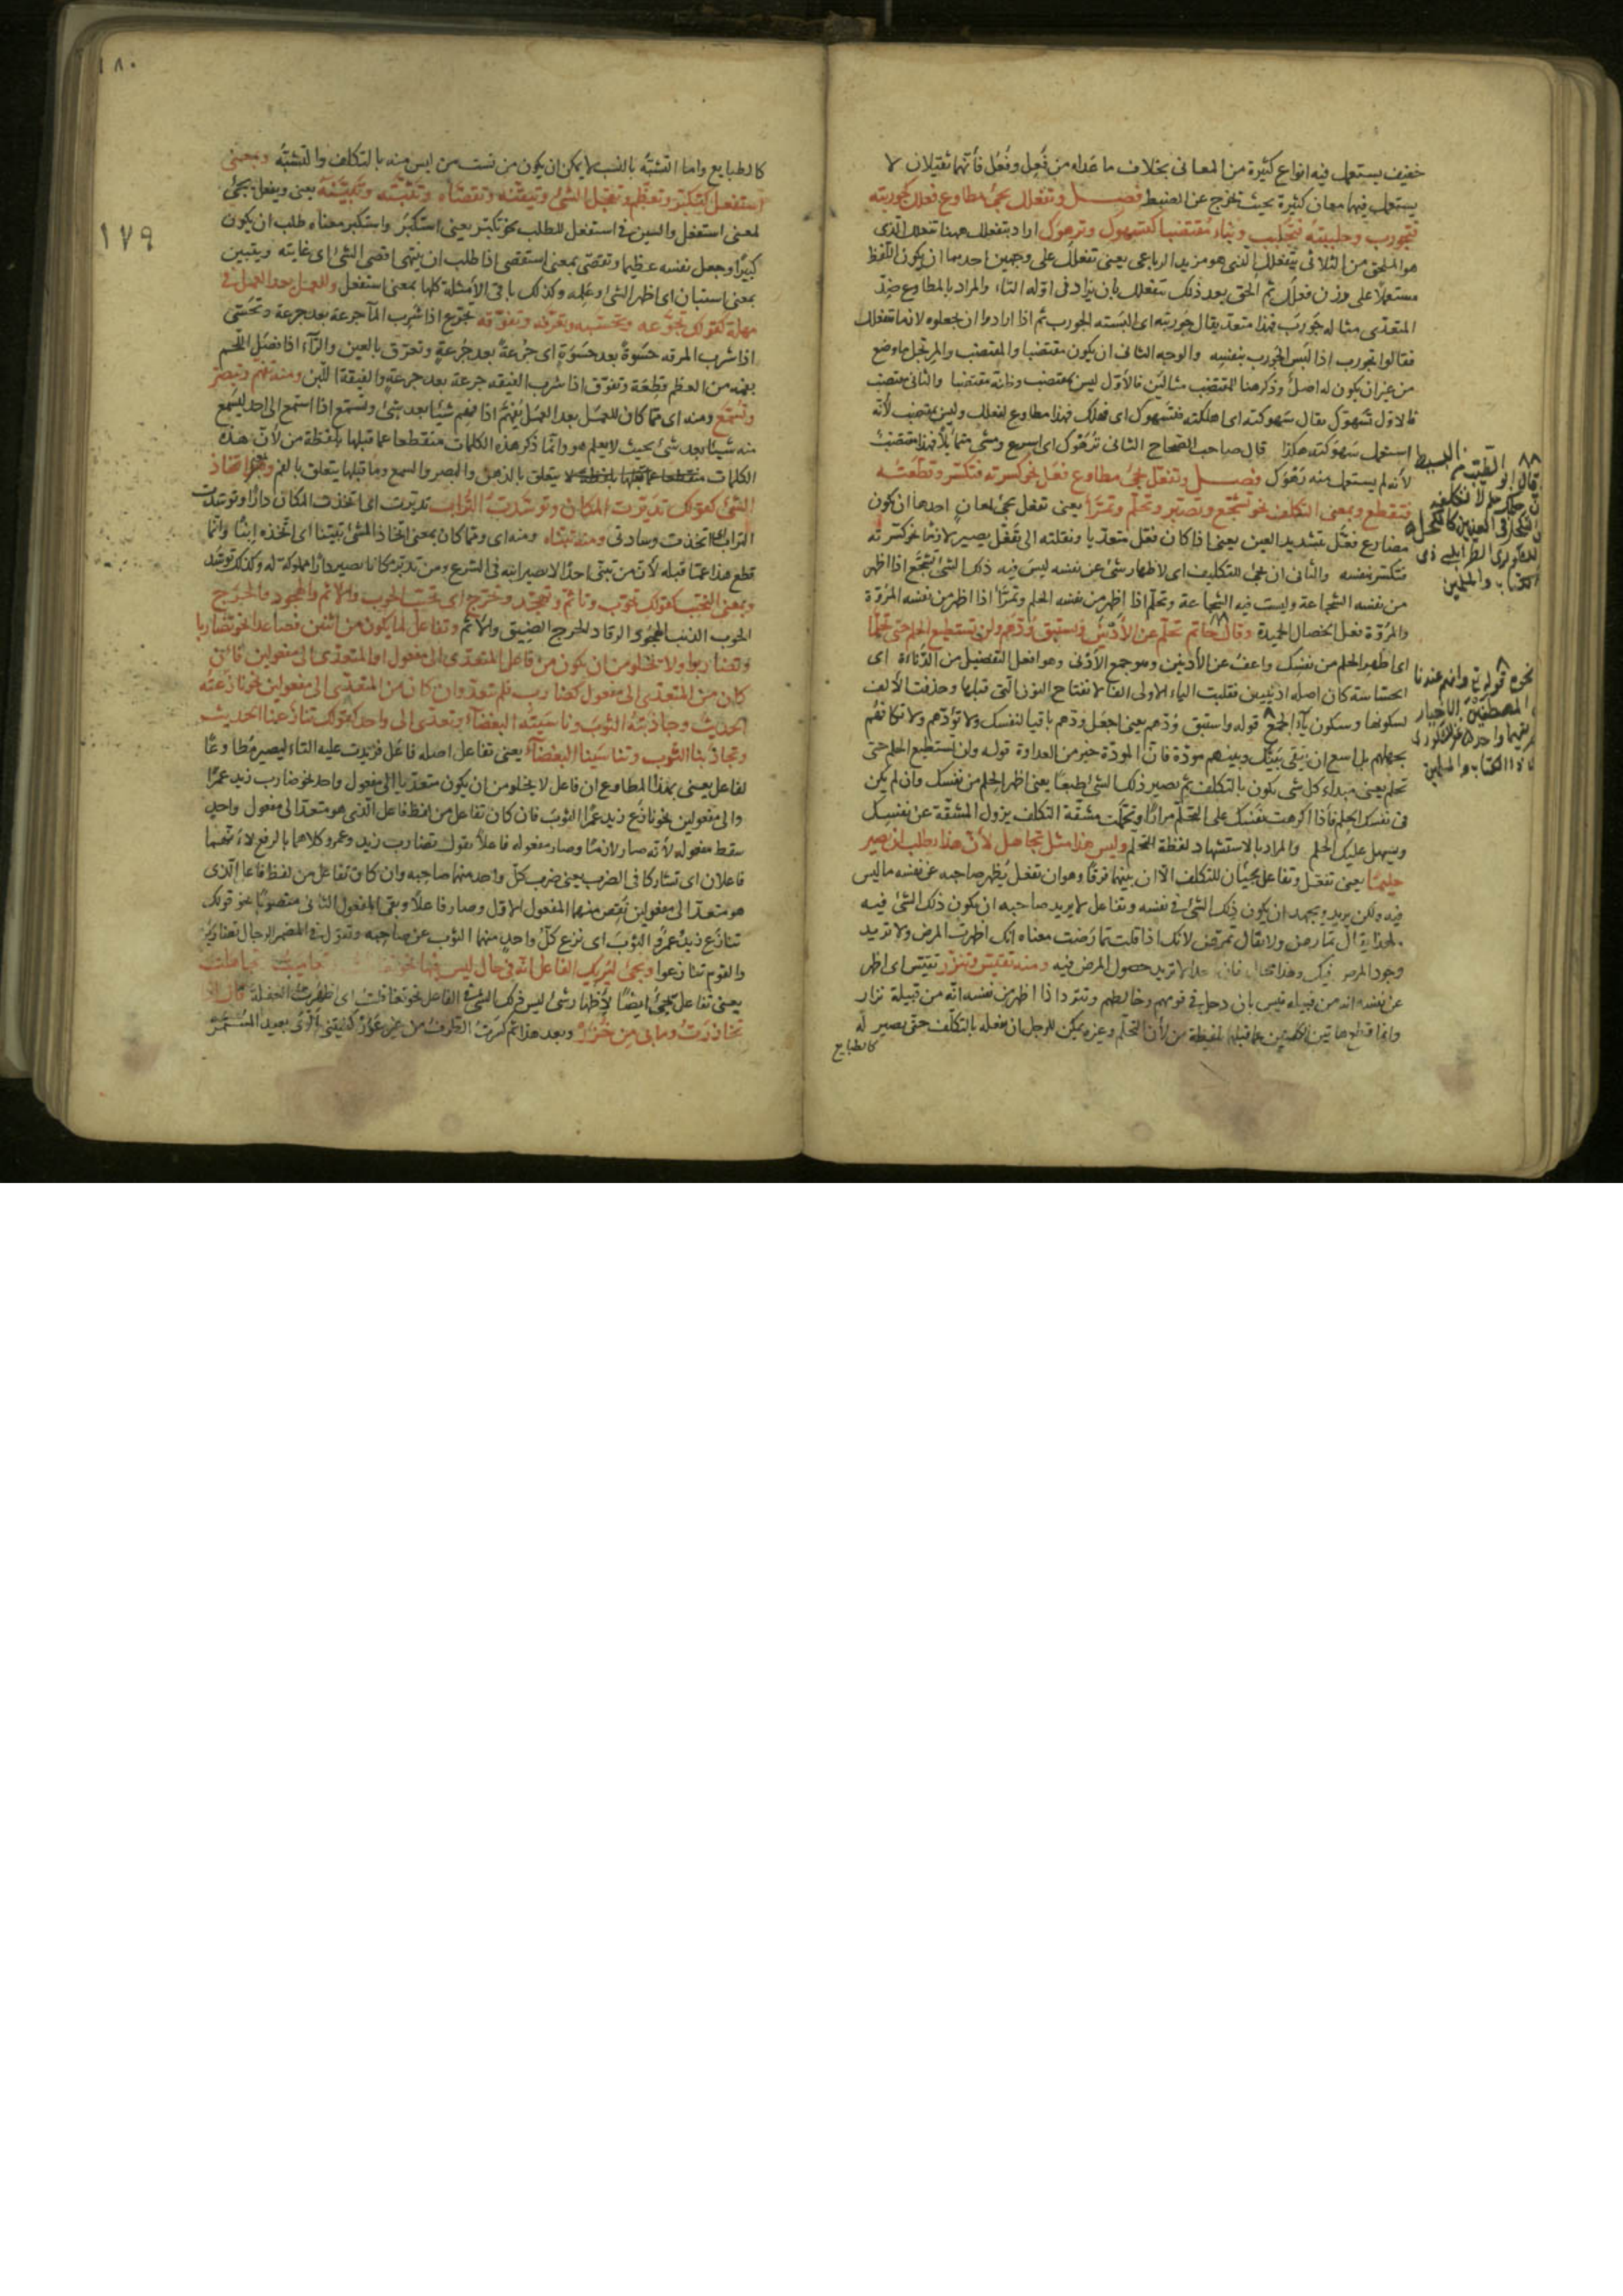 خفيف يستعمل فيه انواع كثيرة من المعاني بخلاف ما عداه من فَعِل وفَعُل فأنهما ثقيلان لا
يستعمل فيهما معان كثيرة بحيث تخرج عن الضبط فصل وتفعلل يجئ مطاوع فعلل كجوربته
فتجورب وجلببته فتجلبب وبناء مقتضبا كتسهوك وترهوك اراد بتفعلل ههنا تفعلل الذى
هو الملحق من الثلاثى بتفعلل الذى هو مزيد الرباعى يعنى تفعلل على وجهين احدهما ان يكون اللفظ
مستعملا على وزن فعلل ثم الحق بعد ذلك بتفعلل بان يزاد فى اوله التاء والمراد بالمطاوع ضد
المتعدى مثاله جَورَبَ فهذا متعد يقال جوربته اى البسته الجورب ثم اذا ارادوا ان يجعلوه لازما تفعلل
فقالوا تجورب اذا لبس الجورب بنفسه والوجه الثانى ان يكون مقتضبا والمقتضب والمرتجل ما وضع
من غير ان يكون له اصل وذكر هنا للمقتضب مثالين فالأول ليس بمقتضب وذاته مقتضبا والثانى مقتضب
فالاول تسهوك يقال سهوكته اى اهلكته فتسهوك اى فهلك فهذا مطاوع لفعلل وليس بمقتضب لأنه
استعمل سهوكته هكذا قال صاحب الصحاح الثانى ترهوك اى اسرع ومشى متمايلا فهذا مقتضب
لأنه لم يستعمل منه رهوك فصل وتفعّل يجئ مطاوع فعّل نحو كسرته فتكسر وقطعته
فتقطع وبمعنى التكلف نحو تشجع وتصبر وتحلم وتمرّأ يعنى تفعل يجئ لمعان احدها ان يكون
مضاوع فعّل بتشديد العين يعنى اذا كان فعّل متعديا ونقلته الى تفعّل يصير لازما نحو كسرته
فتكسر بنفسه والثانى ان يجئ للتكليف اى لاظهار شئ عن نفسه ليس فيه ذلك الشئ تشجّع اذا اظهر
من نفسه الشجاعة وليست فيه الشجاعة وتحلّم اذا اظهر من نفسه الحلم وتمرّأ اذا اظهر من نفسه المروّة
والمروّة فعل الخصال الحميدة وقال حاتم تحلّم عن الأدنين واستبق ودّهم ولن تستطيع الحلم حتى تحلّما
اى اظهر الحلم من نفسك واعف عن الأدنين وهو جمع الأدنى وهو افعل التفضيل من الدناءة اى
الخساسة كان اصله ادنيين فقلبت الياء الاولى الفا لانفتاح النون التى قبلها وحذفت الألف
لسكونها وسكون ياء الجمع قوله واستبق ودهم يعنى اجعل ودهم باقيا لنفسك ولا تؤذهم ولا تكافهم
بجهلهم بل اسع ان يبقى بينك وبينهم مودة فان المودة خير من العداوة قوله ولن تستطيع الحلم حتى
تحلم يعنى مبداء كل شى يكون بالتكلف ثم يصير ذلك الشئ طبعا يعنى اظهر الحلم من نفسك وان لم يكن
فى نفسك الحلم فاذا اكرهت نفسك على التحلّم مرارا وتحملت مشقة التكلف يزول المشقة عن نفسك
ويسهل عليك الحلم والمراد بالاستشهاد لفظة التحلم وليس هذا مثل تجاهل لأن هذا يطلب ان يصير
حليما يعنى تفعّل وتفاعل يجيئان للتكلف الا ان بينهما فرقا وهو ان تفعل يُظهر صاحبه عن نفسه ما ليس
فيه ولكن يريد ويجهد ان يكون ذلك الشئ فى نفسه وتفاعل لا يريد صاحبه ان يكون ذلك الشئ فيه
فلهذا يقال تمارض ولا يقال تمرّض لانك اذا قلت تمارضت معناه انك اظهرت المرض ولا تريد
وجود المرض فيك وهذا محال فان احدا لا يريد حصول المرض فيه ومنه تقيّس وتنزّر تقيّس اى اظهر
عن نفسه انه من قبيلة قيس بان دخل فى قومهم وخالطهم وتنزر اذا اظهر من نفسه انه من قبيلة نزار
وانما قطع هاتين الكلمتين عما قبلها بلفظة من لأن التحلّم وغيره يمكن للرجل ان يفعله بالتكلّف حتى يصير له
كالطبايع
قال ابو الطيب
١٨٠
١٧٩
كالطبايع واما التشبّه بالنسب لا يمكن ان يكون من نسب من ليس منه بالتكلف والتشبّه وبمعنى
استفعل كتكبّر وتعظّم وتعجّل الشئ وتيقّنه وتقصّاه وتثبّته وتبيّنه يعنى وتفعل يجئ
لمعنى استفعل والسين فى استفعل للطلب نحو تكبّر يعنى استكبر واستكبر معناه طلب ان يكون
كبيرا وجعل نفسه عظيما وتقصّى بمعنى استقصى اذا طلب ان ينتهى اقصى الشئ اى غايته وتبيّن
بمعنى استبان اى اظهر الشئ او علمه وكذلك باقى الأمثلة كلها بمعنى استفعل وللعمل بعد العمل فى
مهلة كقولك تجرّعه وتحسّيه وتعرّقه وتفوّقه تجرّع اذا شرب المآ جرعة بعد جرعة وتحسّى
اذا شرب المرقة حَسوةً بعد حَسوَةٍ اى جُرعةً بعد جُرعةٍ وتعرّق بالعين والرآء اذا فصّل اللحم
بفمه من العظم قِطعَة وتفوّق اذا شرب الفيقة جرعة بعد جرعةٍ والفيقة اللبن ومنه تفهّم وتبصّر
وتسمّع ومنه اى مما كان للعمل بعد العمل تفهّم اذا فهم شيئا بعد شئ وتسمّع اذا استمع الى احد ليسمع
منه شيئا بعد شئ بحيث لا يعلم هو وانما ذكر هذه الكلمات منقطعا عما قبلها بلفظة من لأن هذه
الكلمات يتعلق بالذهن والبصر والسمع وما قبلها يتعلق بالفم وبمعنى اتخاذ
الشئ كقولك تديّرت المكان وتوسّدت التراب تديّرت اى اتخذت المكان دارا وتوسّدت
التراب اى اتخذت وسادتى ومنه تبنّاه ومنه اى ومما كان بمعنى اتخاذ الشئ تبنّينا اى اتخذه ابنًا وانّما
قطع هذا عمّا قبله لأن من تبنّى احدًا لا يصير ابنه فى الشرع ومن تديّر مكانا يصير دارا مملوكة له وكذلك توسّد
وبمعنى التجنب كقولك تحوّب وتأثم وتهجّد وتحرّج اى تجنب الحوب والاثم والهجود والحرج
الحوب الذنب الهجود الرقاد الحرج الضيق والأثم وتفاعل لما يكون من اثنين فصاعدا نحو تضاربا
وتضاربوا ولا يخلو من ان يكون من فاعل المتعدّى الى مفعول او المتعدّى الى مفعولين فان
كان من المتعدى الى مفعول كضارب فلم تتعدّ وان كان من المتعدّى الى مفعولين نحو نازعته
الحديث وجاذبته الثوب وناسيته البغضاء تعدّى الى واحد كقولك تنازعنا الحديث
وتجاذبنا الثوب وتناسينا البغضاء يعنى تفاعل اصله فاعَل فزيدت عليه التاء ليصير مطاوعًا
لفاعل يعنى بهذا المطاوع ان فاعل لا يخلو من ان يكون متعديا الى مفعول واحد نحو ضارب زيد عمرًا
والى مفعولين نحو نازَع زيد عمرًا الثوبَ فان كان تفاعل من لفظ فاعل الّذى هو متعد الى مفعول واحدٍ
سقط مفعوله لأنه صار لازمًا وصار مفعوله فاعلاً تقول تضارب زيد وعمرو كلاهما بالرفع لأنهما
فاعلان اى تشاركا فى الضرب يعنى ضرب كلّ واحد منهما صاحبه وان كان تفاعل من لفظ فاعل الّذى
هو متعد الى مفعولين نقص منهما المفعول الاول وصار فاعلاً وبقى المفعول الثانى منصوبًا نحو قولك
تنازَع زيدٌ وعمرٌو الثوبَ اى نزع كلّ واحدٍ منهما الثوب عن صاحبه وتقول فى المضمر الرجال تضاربوا
والقوم تنازعوا ويجئ ليريك الفاعل انّه فى حال ليس فيها نحو تغافلت تعاميت تجاهلت
يعنى تفاعل يجئ ايضًا لأظهار شئ ليس فى ذلك الشئ الفاعل نحو تغافلت اى اظهرت الغفلة قال اذا
تخازرتُ وما بى من خَزَر وبعد هذا ثم كسرت الطرف من غير عَوَر الفيتنى ألوى بعيد المستمرّ